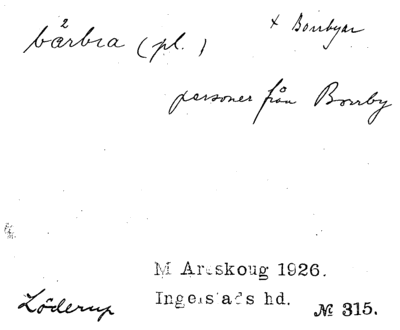 bårbra (pl.) + Borrbyar
personer från Borrby
M Areskoug 1926.
Löderup Ingelstads hd. № 315.